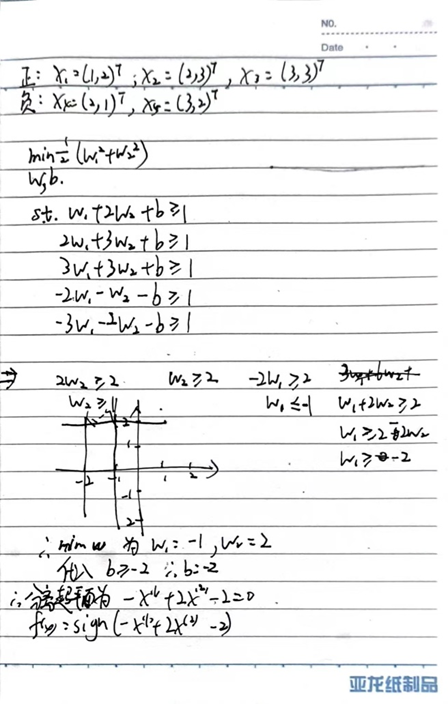 NO.
Date
正: X₁=(1,2)ᵀ, X₂=(2,3)ᵀ, X₃=(3,3)ᵀ
负: X₄=(2,1)ᵀ, X₅=(3,2)ᵀ
min ½(w₁²+w₂²)
w,b.
s.t. w₁+2w₂+b≥1
2w₁+3w₂+b≥1
3w₁+3w₂+b≥1
-2w₁-w₂-b≥1
-3w₁-2w₂-b≥1
⇒ 2w₂≥2 w₂≥2 -2w₁≥2
w₂≥1 w₁≤-1 w₁+2w₂≥2
w₁≥2-2w₂
w₁≥-2
2
1
-2 -1 1 2
-1
2
∴ min w 为 w₁=-1, w₂=2
代入 b≥-2 ∴b=-2
∴分离超平面为 -x⁽¹⁾+2x⁽²⁾-2=0
f(x)=sign(-x⁽¹⁾+2x⁽²⁾-2)
亚龙纸制品